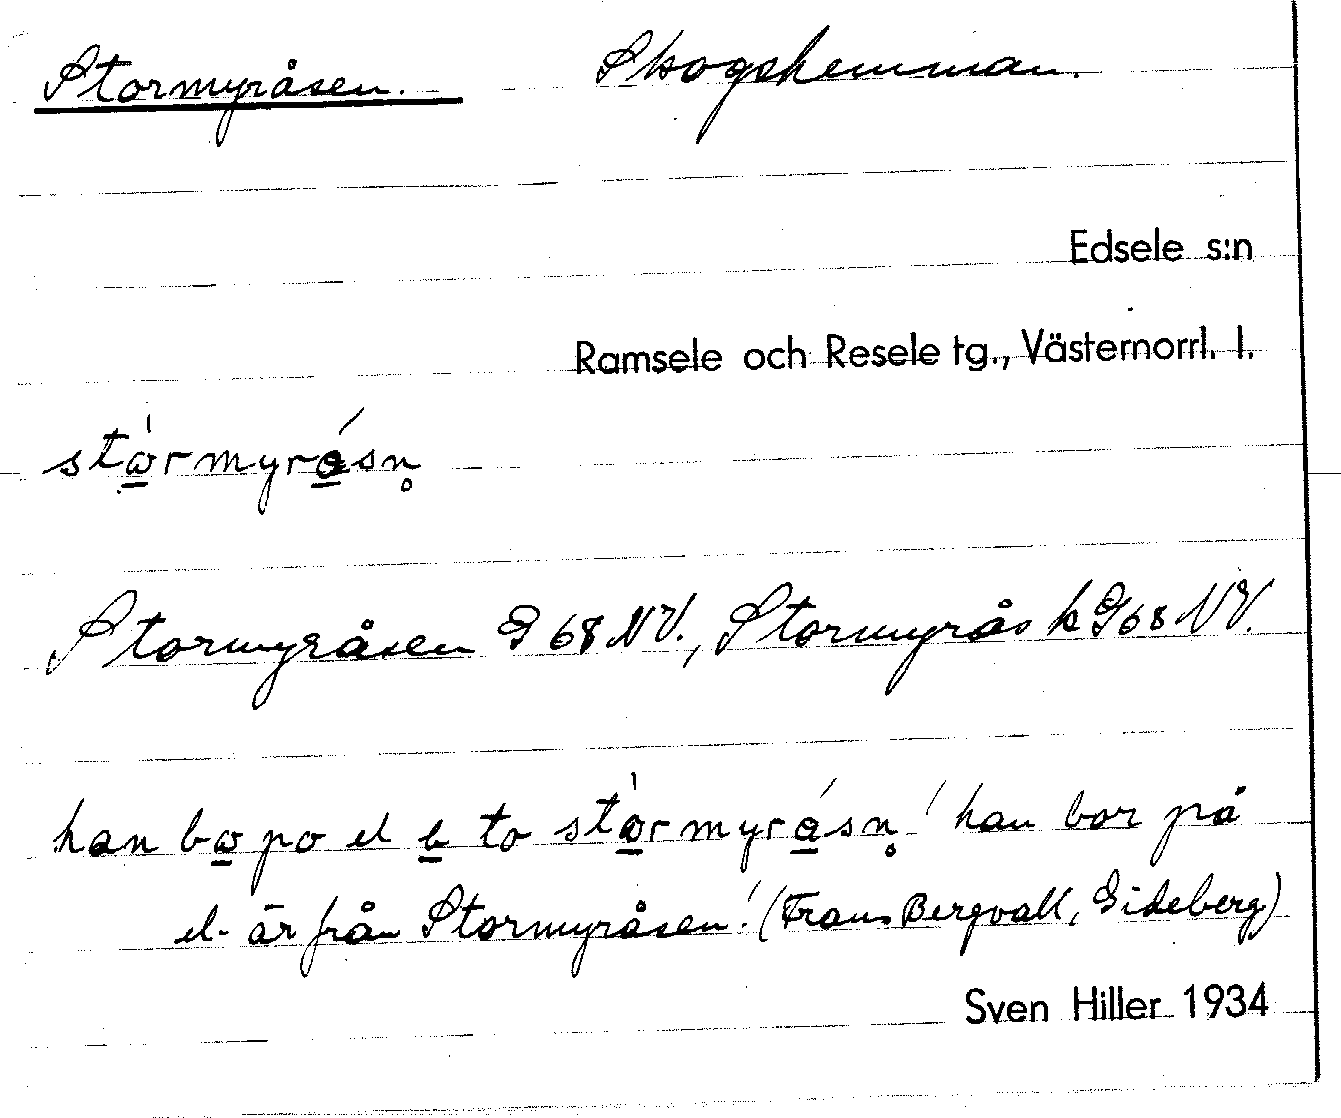 Stormyråsen. Skogshemman.
Edsele s:n
Ramsele och Resele tg., Västernorrl. l.
stòrmyrásn̥
Stormyråsen G 68 NV., Stormyrås k G 68 NV.
han bo po el e to stòrmyrásn̥' han bor på
el. är från Stormyråsen'. (Frans Bergvall, Gideberg)
Sven Hiller 1934